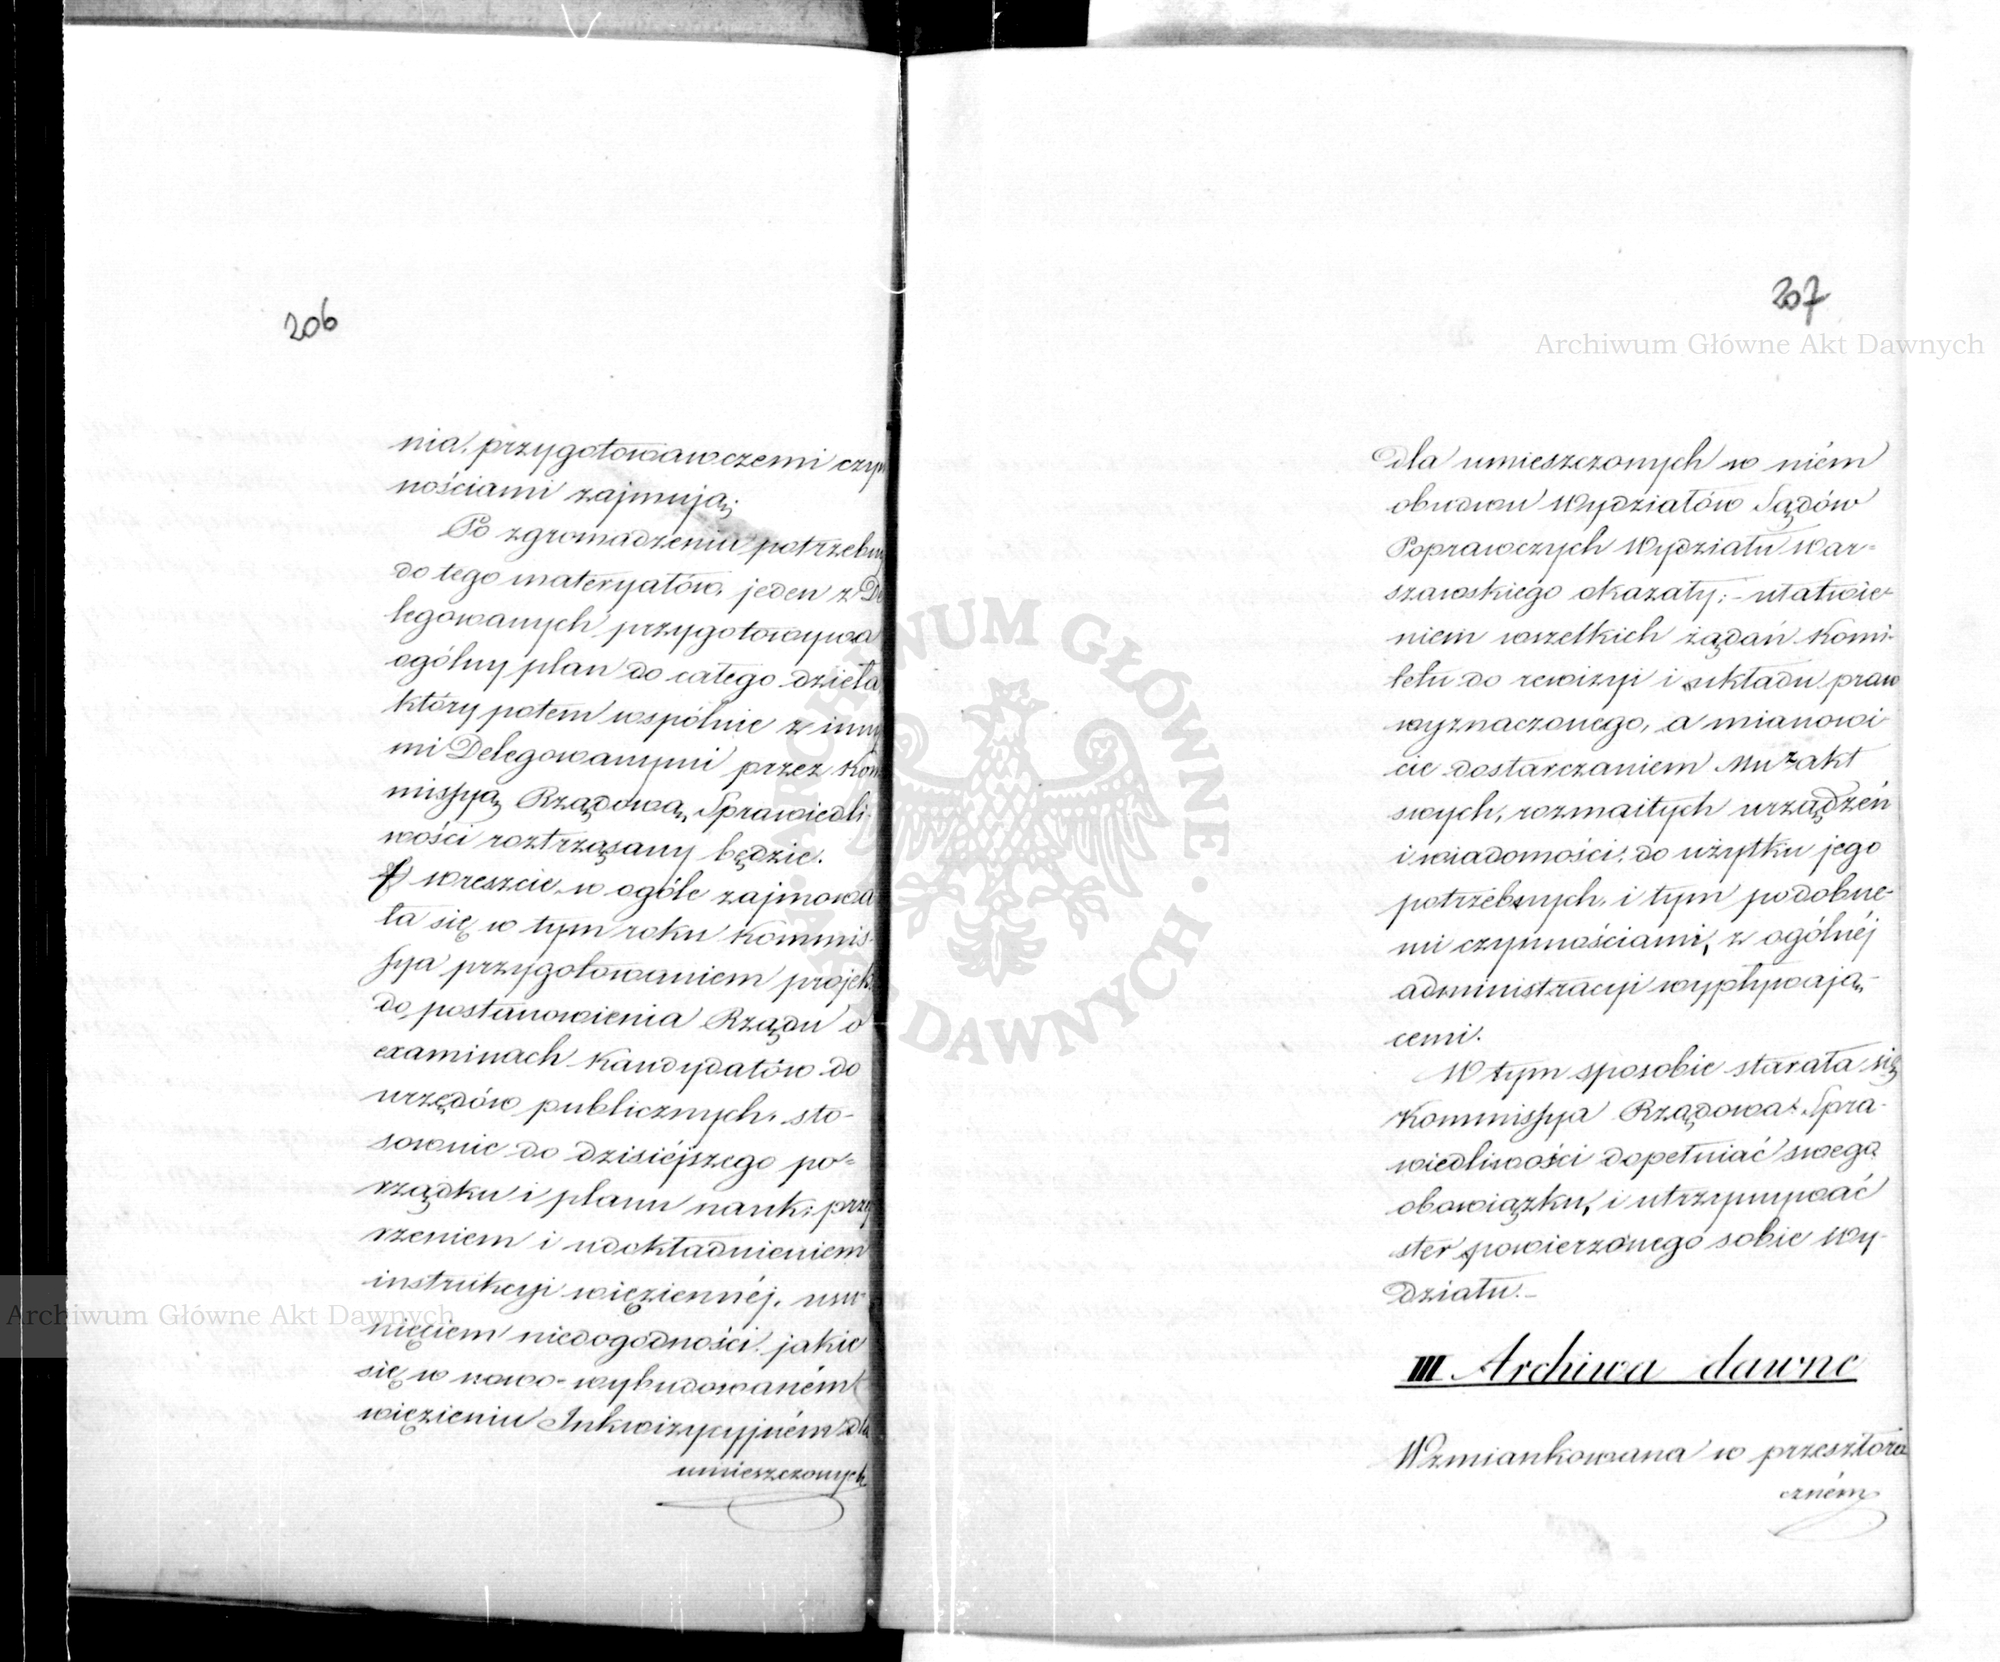 206
nia, przygotowawczemi czyn
nościami zajmują.
Po zgromadzeniu potrzebny
do tego materyałów, jeden z De
legowanych przygotowywa
ogólny plan do całego dzieła,
który potem wspólnie z inny
mi Delegowanymi przez Kom
missyą Rządową Sprawiedli
wości roztrząsany będzie.
f) wreszcie, w ogóle zajmowa
ła się w tym roku Kommis-
syа przygotowaniem projek
do postanowienia Rządu o
examinach Kandydatów do
urzędów publicznych, sto-
sownie do dzisiéjszego po=
rządku i planu nauk; przey
rzeniem i udokładnieniem
instrukcyi więziennéj, usu-
nięciem niedogodności, jakie
się w nowo-wybudowaném
więzieniu Inkwizycyjném dla
umieszczonych
207
dla umieszczonych w niém
obudwu Wydziałów Sądów
Poprawczych Wydziału War=
szawskiego okazały; - ułatwie-
niem wszelkich żądań Komi-
tetu do rewizyi i układu praw
wyznaczonego, a mianowi
cie dostarczaniem Mu z akt
swych, rozmaitych urządzeń
i wiadomości, do użytku jego
potrzebnych, i tym podobne-
mi czynnościami, z ogólnéj
administracyi wypływają-
cemi.
W tym sposobie starała się
Kommissya Rządowa Spra-
wiedliwości dopełniać swego
obowiązku, i utrzymywać
ster powierzonego sobie Wy-
działu.-
III Archiwa dawne
Wzmiankowana w przeszłoro
czném
Archiwum Główne Akt Dawnych
Archiwum Główne Akt Dawnych
ARCHIWUM GŁÓWNE AKT DAWNYCH